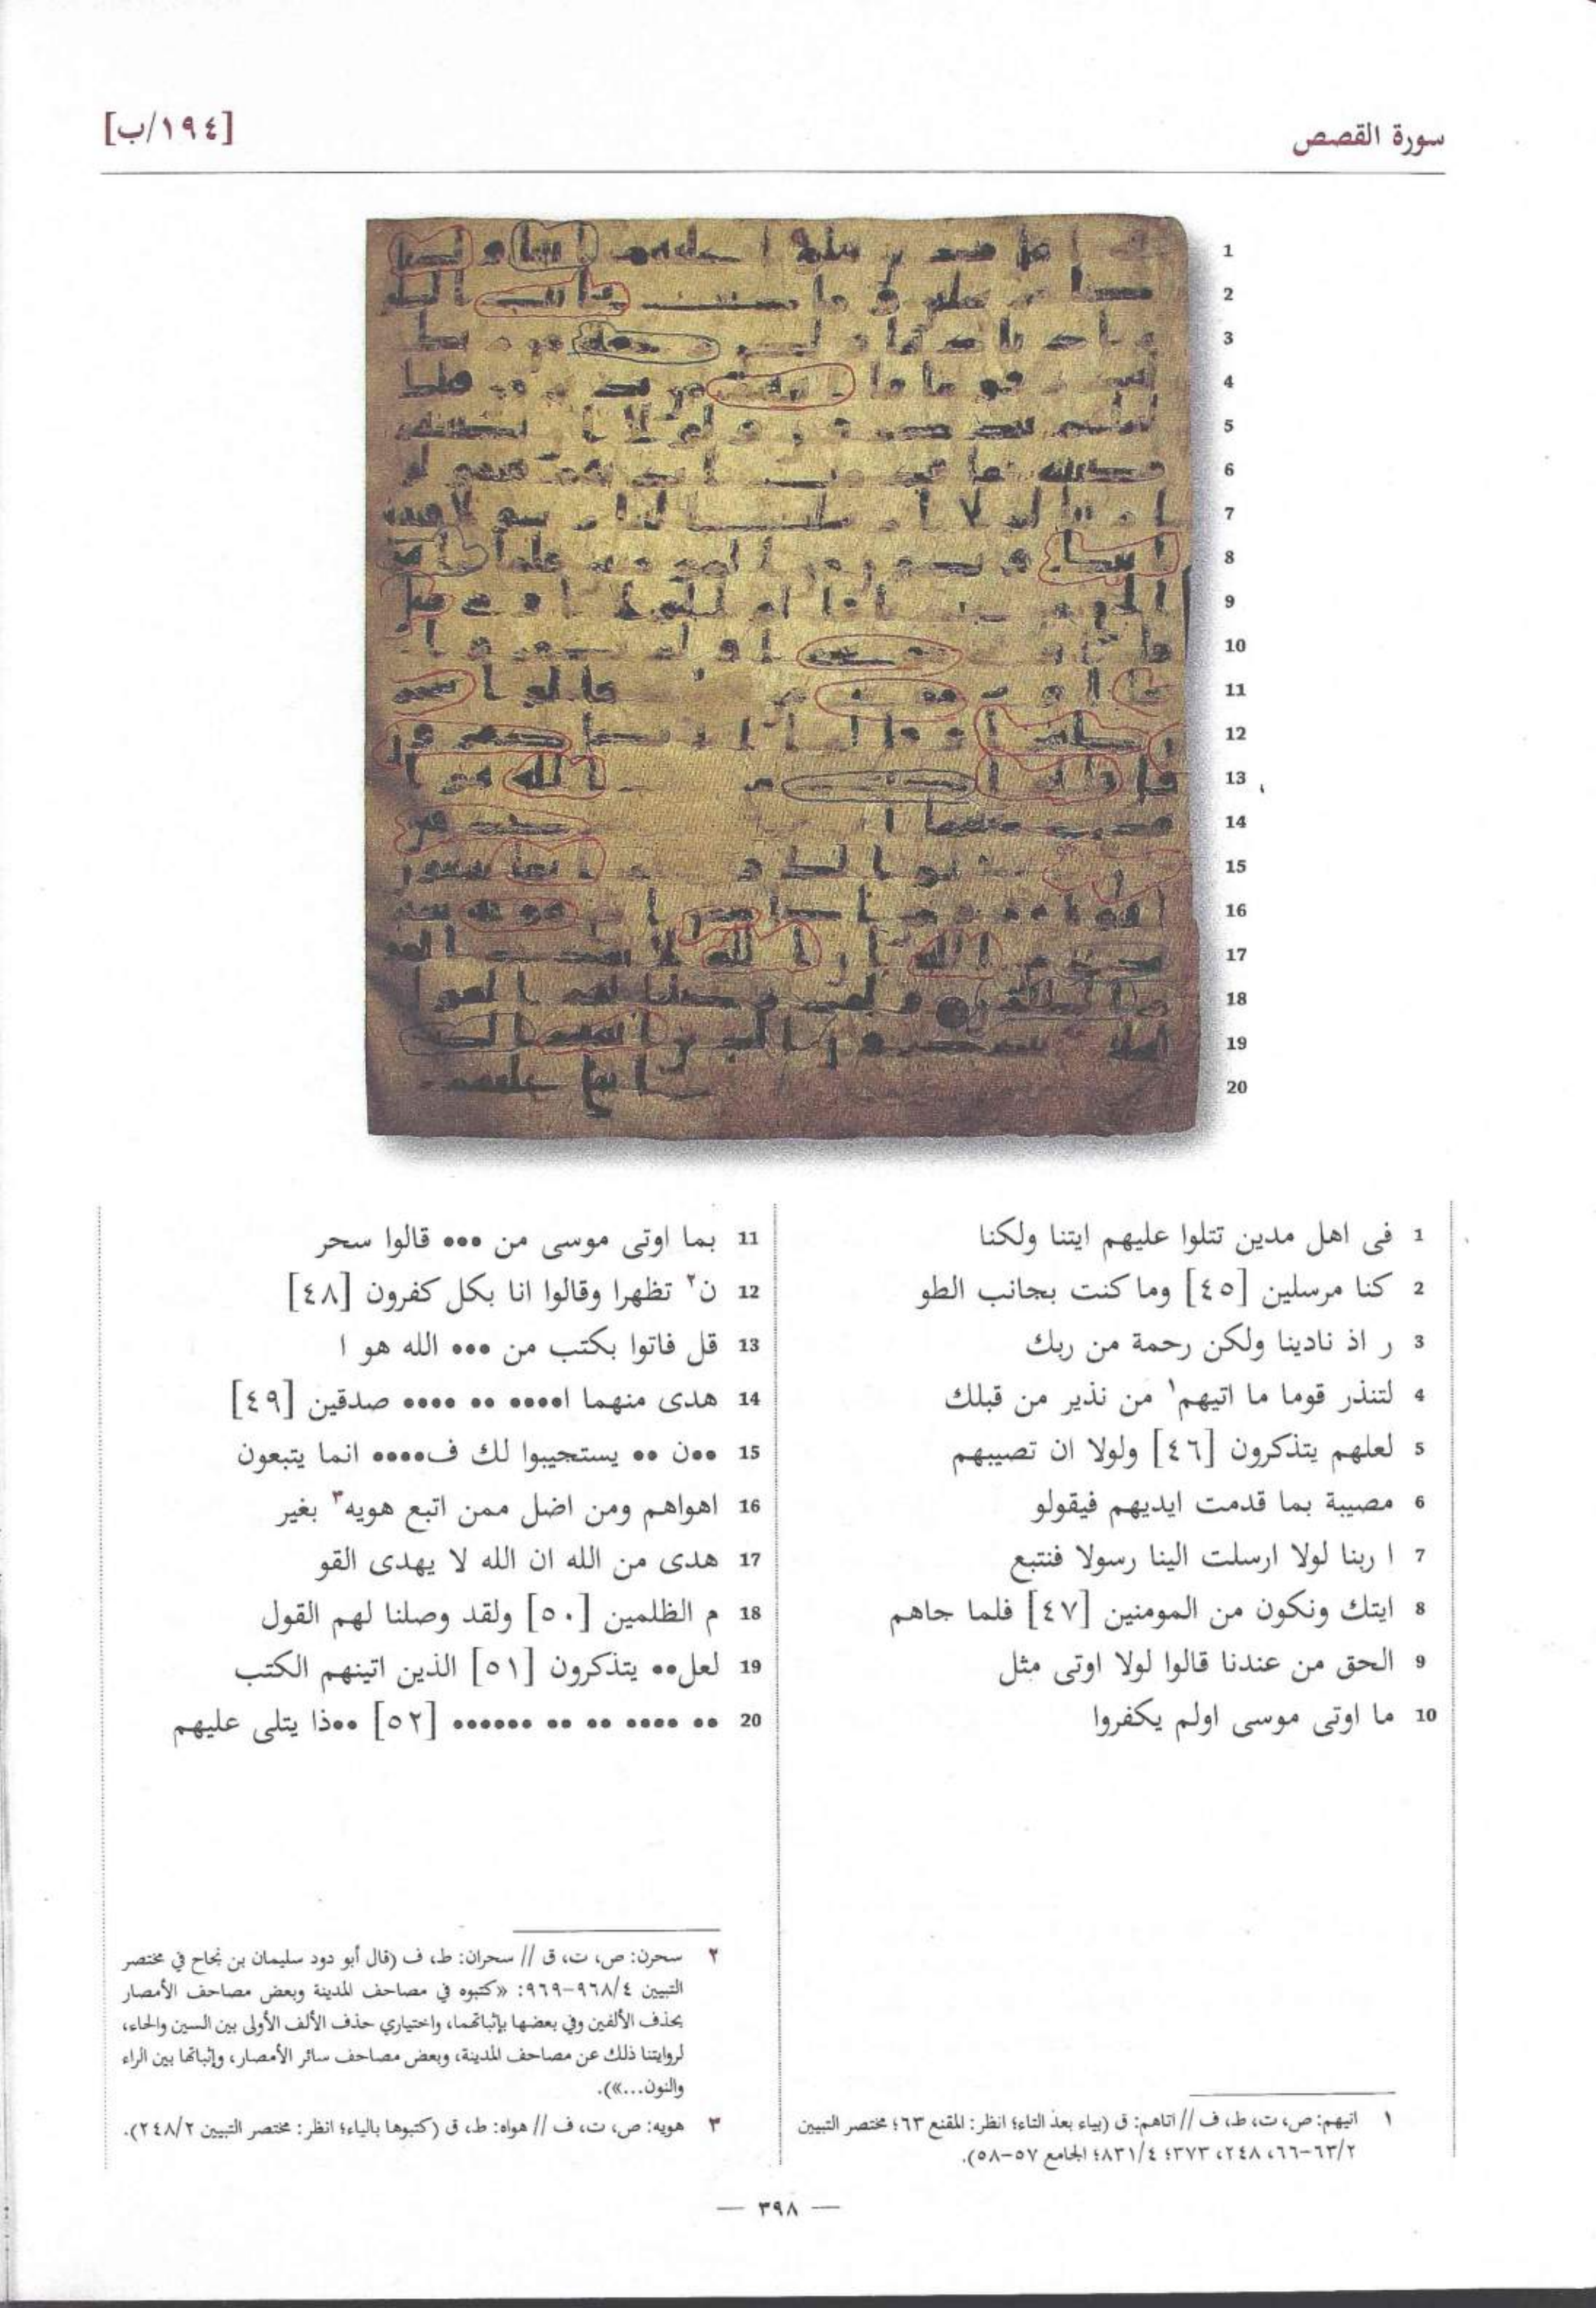 سورة القصص
[١٩٤/ب]
1 فى اهل مدين تتلوا عليهم ايتنا ولكنا
2 كنا مرسلين [٤٥] وما كنت بجانب الطو
3 ر اذ نادينا ولكن رحمة من ربك
4 لتنذر قوما ما اتيهم١ من نذير من قبلك
5 لعلهم يتذكرون [٤٦] ولولا ان تصيبهم
6 مصيبة بما قدمت ايديهم فيقولو
7 ا ربنا لولا ارسلت الينا رسولا فنتبع
8 ايتك ونكون من المومنين [٤٧] فلما جاهم
9 الحق من عندنا قالوا لولا اوتى مثل
10 ما اوتى موسى اولم يكفروا
11 بما اوتى موسى من ••• قالوا سحر
12 ن٢ تظهرا وقالوا انا بكل كفرون [٤٨]
13 قل فاتوا بكتب من ••• الله هو ا
14 هدى منهما ا•••• •• •••• صدقين [٤٩]
15 ••ن •• يستجيبوا لك ف•••• انما يتبعون
16 اهواهم ومن اضل ممن اتبع هويه٣ بغير
17 هدى من الله ان الله لا يهدى القو
18 م الظلمين [٥٠] ولقد وصلنا لهم القول
19 لعل•• يتذكرون [٥١] الذين اتينهم الكتب
20 •• •••• •• •• •••••• [٥٢] ••ذا يتلى عليهم
١ اتيهم: ص، ت، ط، ف // اتاهم: ق (بياء بعد التاء؛ انظر: المقنع ٦٣؛ مختصر التبيين
٦٣/٢-٦٦، ٢٤٨، ٣٧٣؛ ٨٣١/٤؛ الجامع ٥٧-٥٨).
٢ سحرن: ص، ت، ق // سحران: ط، ف (قال أبو دود سليمان بن نجاح في مختصر
التبيين ٩٦٨/٤-٩٦٩: «كتبوه في مصاحف المدينة وبعض مصاحف الأمصار
بحذف الألفين وفي بعضها بإثباتهما، واختياري حذف الألف الأولى بين السين والحاء،
لروايتنا ذلك عن مصاحف المدينة، وبعض مصاحف سائر الأمصار، وإثباتها بين الراء
والنون...»).
٣ هويه: ص، ت، ف // هواه: ط، ق (كتبوها بالياء؛ انظر: مختصر التبيين ٢٤٨/٢).
— ٣٩٨ —